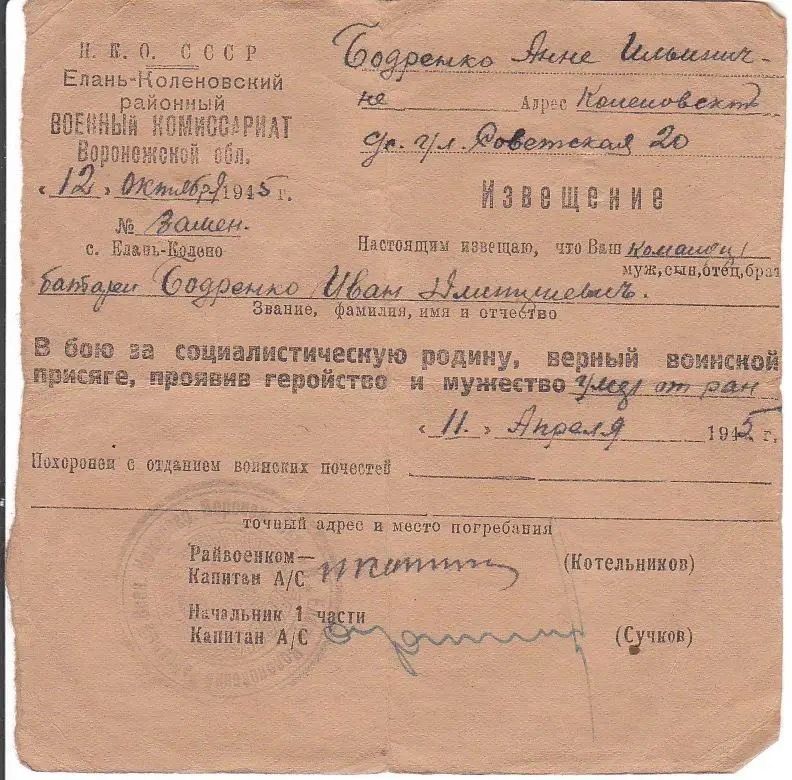 Н. К. О. СССР
Елань-Коленовский
районный
ВОЕННЫЙ КОМИССАРИАТ
Воронежской обл.
„ 12 „ октября 1945 г.
№ Замен.
с. Елань-Колено
Бодренко Анне Ильинич-
не Адрес Коленовский
с/с. г/л. Советская 20
Извещение
Настоящим извещаю, что Ваш командир
муж,сын,отец,брат
батареи Бодренко Иван
Звание, фамилия, имя и отчество
В бою за социалистическую родину, верный воинской
присяге, проявив геройство и мужество умер от ран
„ 11. „ Апреля 1945 г.
Похоронен с отданием воинских почестей
точный адрес и место погребания
Райвоенком—
Капитан А/С (Котельников)
Начальник 1 части
Капитан А/С (Сучков)